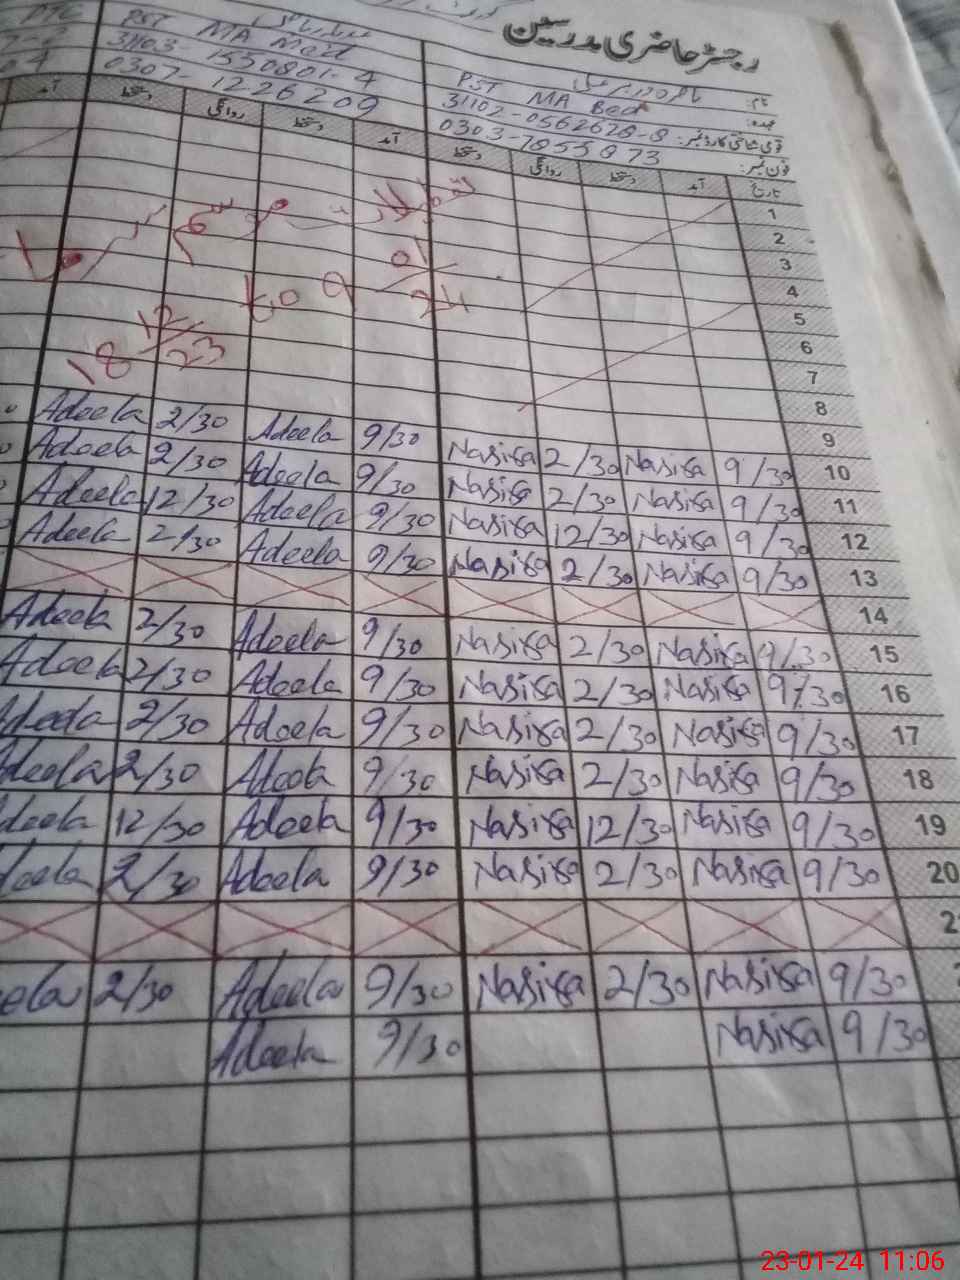 رجسٹر حاضری مدرسین
نام:
عہدہ: PST MA Bed
قومی شناختی کارڈ نمبر: 31102-0562628-8
فون نمبر: 0303-7855873
PST MA Med
31103-1550801-4
0307-1226209
PTC
تاریخ آمد دستخط روانگی دستخط آمد دستخط روانگی دستخط آمد
1
2
3
4
5
6
7
8
تعطیلات موسم سرما
18 12/23 to 9 01/24
Adeela 2/30 Adeela 9/30
9
Adeela 2/30 Adeela 9/30 Nasira 2/30 Nasira 9/30 10
Adeela 12/30 Adeela 9/30 Nasira 2/30 Nasira 9/30 11
Adeela 2/30 Adeela 9/30 Nasira 12/30 Nasira 9/30 12
Nasira 2/30 Nasira 9/30 13
14
Adeela 2/30 Adeela 9/30 Nasira 2/30 Nasira 9/30 15
Adeela 2/30 Adeela 9/30 Nasira 2/30 Nasira 9/30 16
Adeela 2/30 Adeela 9/30 Nasira 2/30 Nasira 9/30 17
deela 2/30 Adeela 9/30 Nasira 2/30 Nasira 9/30 18
deela 12/30 Adeela 9/30 Nasira 12/30 Nasira 9/30 19
eela 2/30 Adeela 9/30 Nasira 2/30 Nasira 9/30 20
2
ela 2/30 Adeela 9/30 Nasira 2/30 Nasira 9/30
Adeela 9/30 Nasira 9/30
23-01-24 11:06